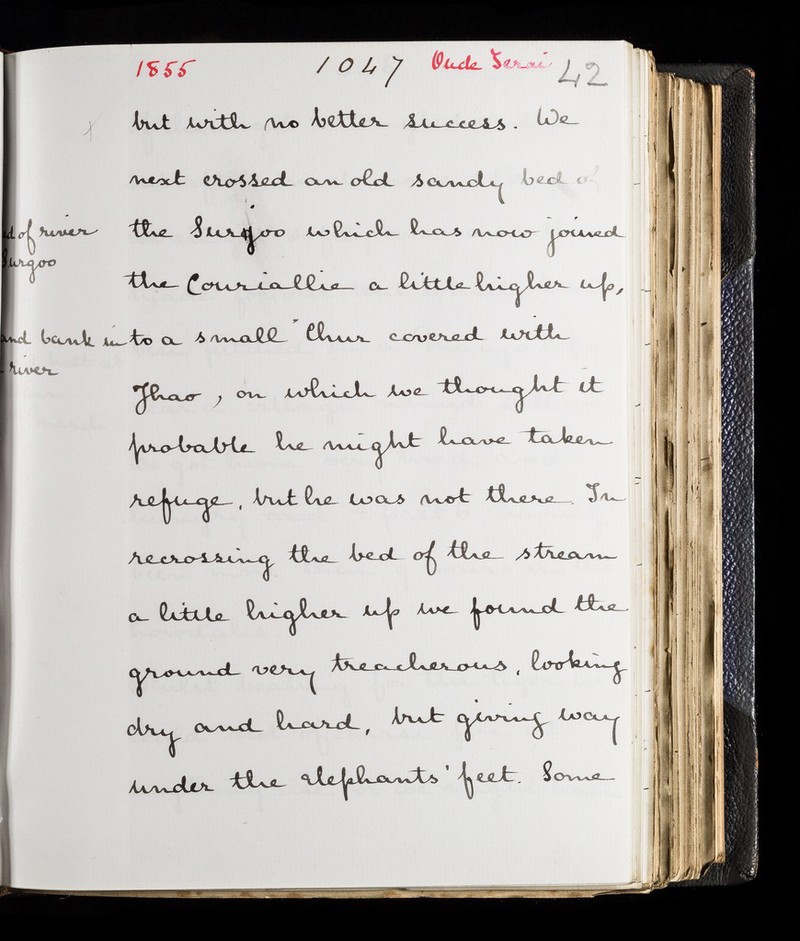 1855 1047 Oude Terai 42
but with no better success. We
next crossed an old sandy bed of
the Surjoo which has now joined
the Couriallie a little higher up,
to a small "Chur covered with
Jhao, on which we thought it
probable he might have taken
refuge, but he was not there. In
recrossing the bed of the stream
a little higher up we found the
ground very treacherous, looking
dry and hard, but giving way
under the elephants' feet. Some
of river
Surgoo
bank in
river